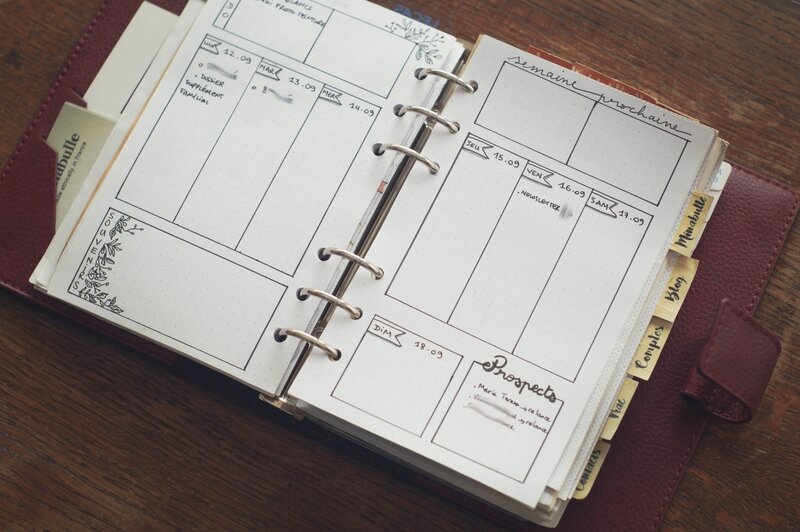 DO
LUN 12.09
. DOSSIER
SUPPLÉMENT
FAMILIAL
MAR 13.09
MER 14.09
SOUVENIRS
semaine prochaine
JEU 15.09
VEN 16.09
. NEWSLETTER
SAM 17.09
DIM 18.09
Prospects
→ relance
→ relance
Manabulle
Blog
Comptes
Vrac
Contacts
ethically in France